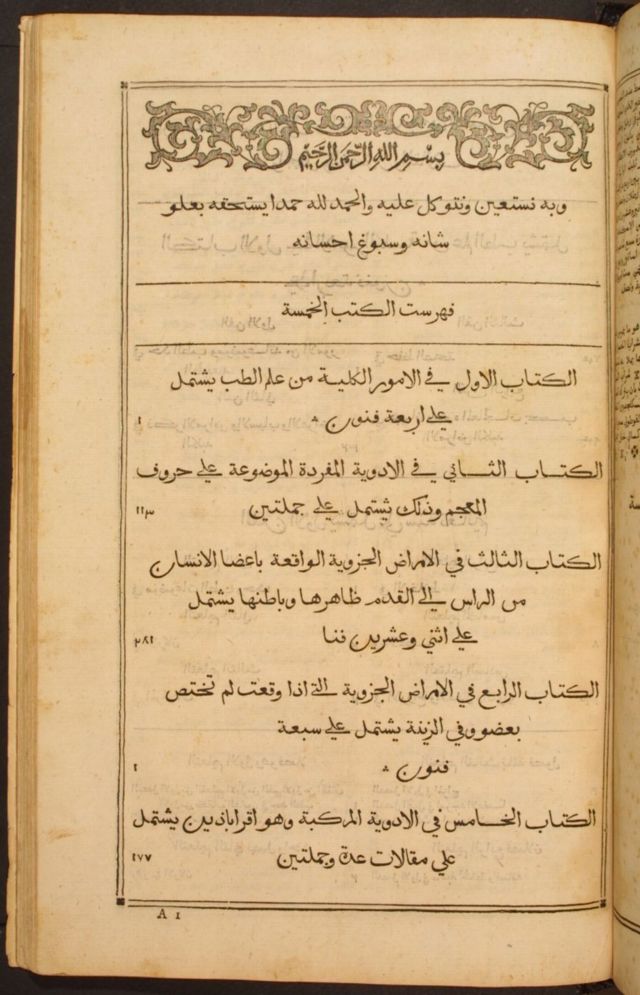 بسم الله الرحمن الرحيم
وبه نستعين ونتوكل عليه والحمد لله حمدا يستحقه بعلو
شانه وسبوغ احسانه
فهرست الكتب الخمسة
الكتاب الاول في الامور الكلية من علم الطب يشتمل
علي اربعة فنون ١
الكتاب الثاني في الادوية المفردة الموضوعة علي حروف
المعجم وذلك يشتمل علي جملتين
الكتاب الثالث في الامراض الجزوية الواقعة باعضا الانسان
من الراس الي القدم ظاهرها وباطنها يشتمل
علي اثني وعشرين فنا
الكتاب الرابع في الامراض الجزوية التي اذا وقعت لم تختص
بعضو وفي الزينة يشتمل علي سبعة
فنون
الكتاب الخامس في الادوية المركبة وهو اقراباذين يشتمل
علي مقالات عدة وجملتين ١٧٧
A 1